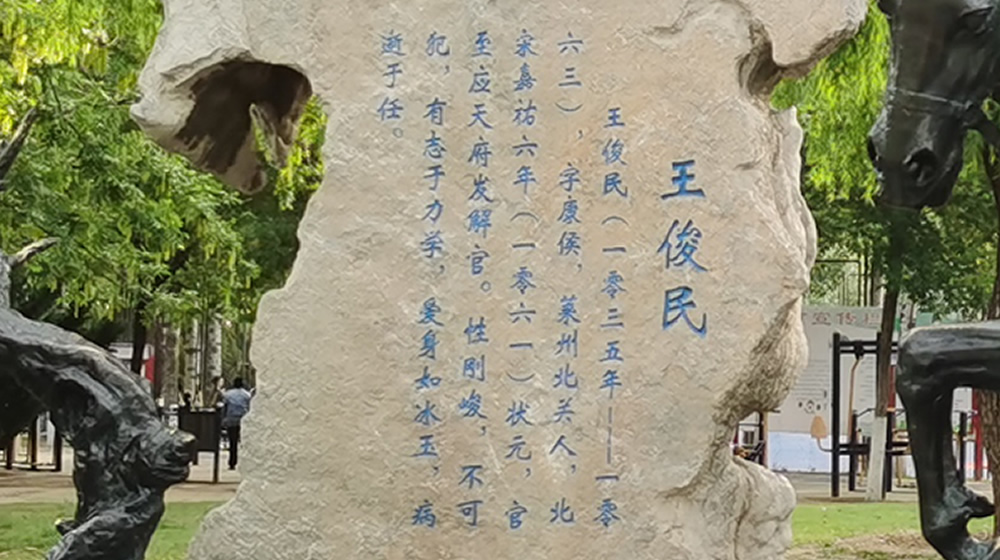 王俊民
王俊民（一零三五年——一零
六三），字康侯，莱州北关人，北
宋嘉祐六年（一零六一）状元，官
至应天府发解官。性刚峻，不可
犯，有志于力学，爱身如冰玉，病
逝于任。
宣传栏